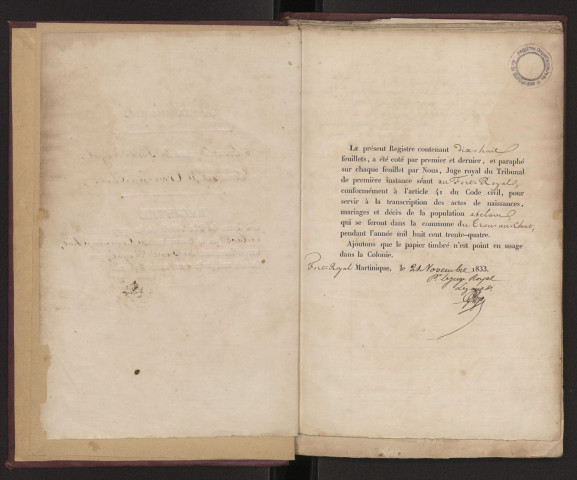 Le présent Registre contenant dix-huit
feuillets, a été coté par premier et dernier, et paraphé
sur chaque feuillet par Nous, Juge royal du Tribunal
de première instance séant au Fort-Royal,
conformément à l'article 41 du Code civil, pour
servir à la transcription des actes de naissances,
mariages et décès de la population esclave
qui se feront dans la commune du Trou-au-Chat,
pendant l'année mil huit cent trente-quatre.
Ajoutons que le papier timbré n'est point en usage
dans la Colonie.
Fort-Royal Martinique, le 21 Novembre 1833.
Royal